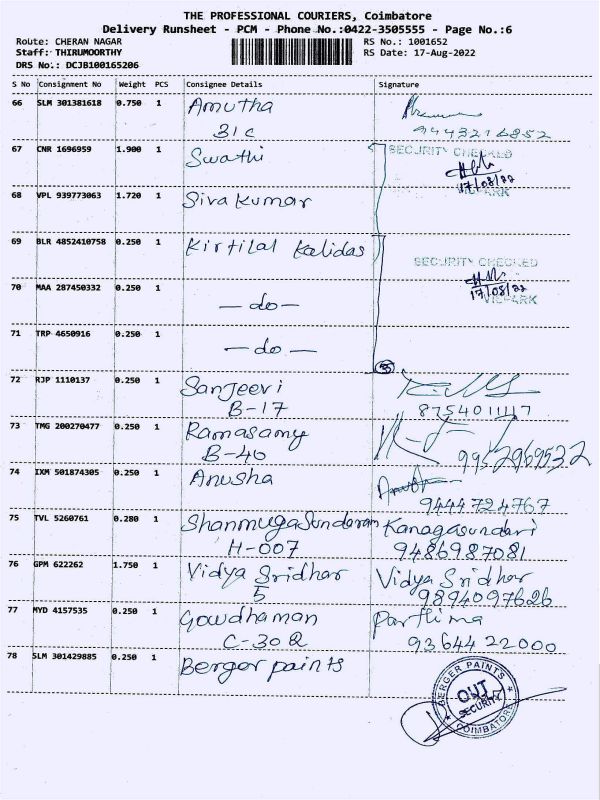 THE PROFESSIONAL COURIERS, Coimbatore
Delivery Runsheet - PCM - Phone No.:0422-3505555 - Page No.:6
Route: CHERAN NAGAR RS No.: 1001652
Staff: THIRUMOORTHY RS Date: 17-Aug-2022
DRS No.: DCJB100165206
S No Consignment No Weight PCS Consignee Details Signature
66 SLM 301381618 0.750 1 Amutha
31c 9443216852
67 CNR 1696959 1.900 1 Swathi SECURITY CHECKED
17/08/22
68 VPL 939773063 1.720 1 Siva Kumar
69 BLR 4852410758 0.250 1 Kirtilal Kalidas
SECURITY CHECKED
70 MAA 287450332 0.250 1 -do- 17/08/22
71 TRP 4650916 0.250 1 -do-
72 RJP 1110137 0.250 1 Sanjeevi
B-17 8754011117
73 TMG 200270477 0.250 1 Ramasamy
B-40 9952969532
74 IXM 501874305 0.250 1 Anusha
9444724767
75 TVL 5260761 0.280 1 Shanmugasundaram Kanagasundari
H-007 9486987081
76 GPM 622262 1.750 1 Vidya Sridhar Vidya Sridhar
5 9894097626
77 MYD 4157535 0.250 1 Gowdhaman
C-302 9364422000
78 SLM 301429885 0.250 1 Berger paints
BERGER PAINTS
OUT
SECURITY
COIMBATORE